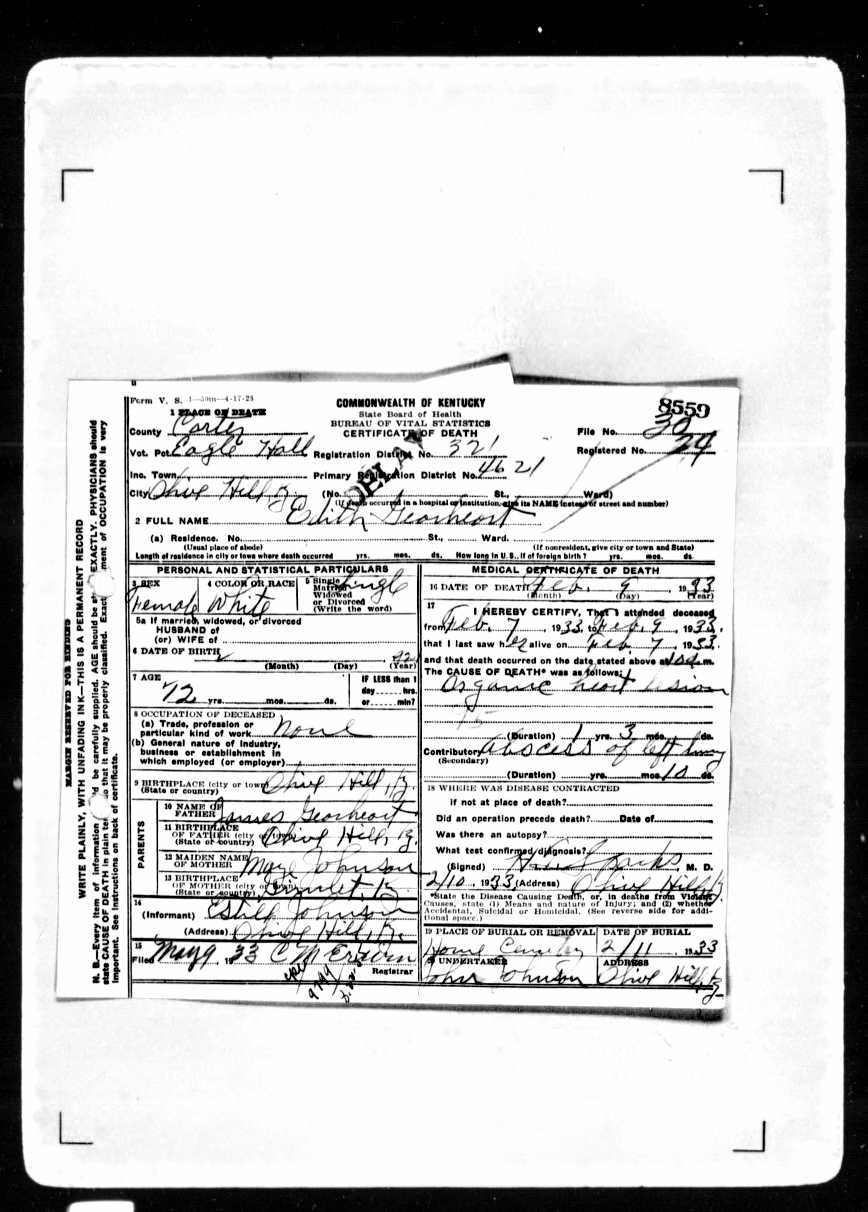 Form V. S. 1—50m—4-17-28
COMMONWEALTH OF KENTUCKY
State Board of Health
BUREAU OF VITAL STATISTICS
CERTIFICATE OF DEATH
8559
File No. 30
Registered No. 24
1 PLACE OF DEATH
County Carter
Vot. Pct. Eagle Hall Registration District No. 321
Inc. Town Primary Registration District No. 4621
DELAY
City Olive Hill Ky (No. St., Ward)
(If death occurred in a hospital or institution, give its NAME instead of street and number)
2 FULL NAME Edith Gearheart
(a) Residence. No. St., Ward.
(Usual place of abode) (If nonresident, give city or town and State)
Length of residence in city or town where death occurred yrs. mos. ds. How long in U. S., if of foreign birth? yrs. mos. ds.
PERSONAL AND STATISTICAL PARTICULARS
3 SEX Female
4 COLOR OR RACE White
5 Single Married Widowed or Divorced (Write the word) Single
5a If married, widowed, or divorced
HUSBAND of
(or) WIFE of
6 DATE OF BIRTH
(Month) (Day) (Year)
7 AGE
72 yrs. mos. ds.
IF LESS than 1
day hrs.
or min?
8 OCCUPATION OF DECEASED
(a) Trade, profession or
particular kind of work None
(b) General nature of industry,
business or establishment in
which employed (or employer)
9 BIRTHPLACE (city or town) Olive Hill, Ky.
(State or country)
PARENTS
10 NAME OF FATHER James Gearheart
11 BIRTHPLACE OF FATHER (city or town) Olive Hill, Ky.
(State or country)
12 MAIDEN NAME OF MOTHER Mary Johnson
13 BIRTHPLACE OF MOTHER (city or town) Grimlet, Ky.
(State or country)
14
(Informant) Estill Johnson
(Address) Olive Hill, Ky.
15
Filed May 9 1933 C M Erwin
Registrar
MEDICAL CERTIFICATE OF DEATH
16 DATE OF DEATH Feb. 9 1933
(Month) (Day) (Year)
17 I HEREBY CERTIFY, That I attended deceased
from Feb. 7, 1933, to Feb. 9, 1933,
that I last saw her alive on Feb 7, 1933.
and that death occurred on the date stated above at m.
The CAUSE OF DEATH* was as follows:
Organic heart lesion
(Duration) 1 yrs. 3 mos. ds.
Contributory Abscess of left lung
(Secondary)
(Duration) yrs. mos. 10 ds.
18 WHERE WAS DISEASE CONTRACTED
if not at place of death?
Did an operation precede death? Date of
Was there an autopsy?
What test confirmed diagnosis?
(Signed) M. D.
2/10, 1933 (Address) Olive Hill, Ky.
*State the Disease Causing Death, or, in deaths from Violent
Causes, state (1) Means and nature of Injury; and (2) whether
Accidental, Suicidal or Homicidal. (See reverse side for addi-
tional space.)
19 PLACE OF BURIAL OR REMOVAL DATE OF BURIAL
Home Cemetery 2/11, 1933
20 UNDERTAKER ADDRESS
John Johnson Olive Hill, Ky
MARGIN RESERVED FOR BINDING
WRITE PLAINLY, WITH UNFADING INK—THIS IS A PERMANENT RECORD
N. B.—Every item of information be carefully supplied. AGE should be EXACTLY. PHYSICIANS should
state CAUSE OF DEATH in plain so that it may be properly classified. Exact of OCCUPATION is very
important. See instructions on back of certificate.